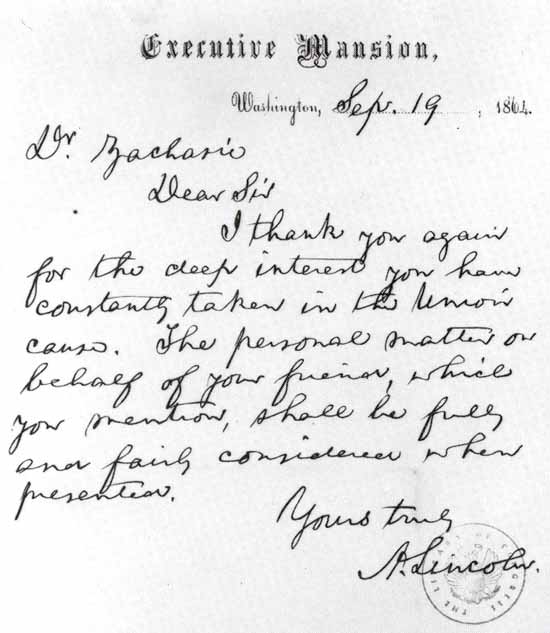 Executive Mansion,
Washington, Sep. 19, 1864.
Dr. Zacharie
Dear Sir
I thank you again
for the deep interest you have
constantly taken in the Union
cause. The personal matter on
behalf of your friend, which
you mention, shall be fully
and fairly considered when
presented.
Yours truly
A. Lincoln.
THE LIBRARY OF CONGRESS